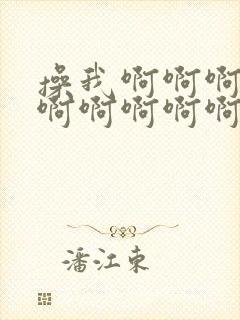 操我啊啊啊
啊啊啊啊啊
潘江东